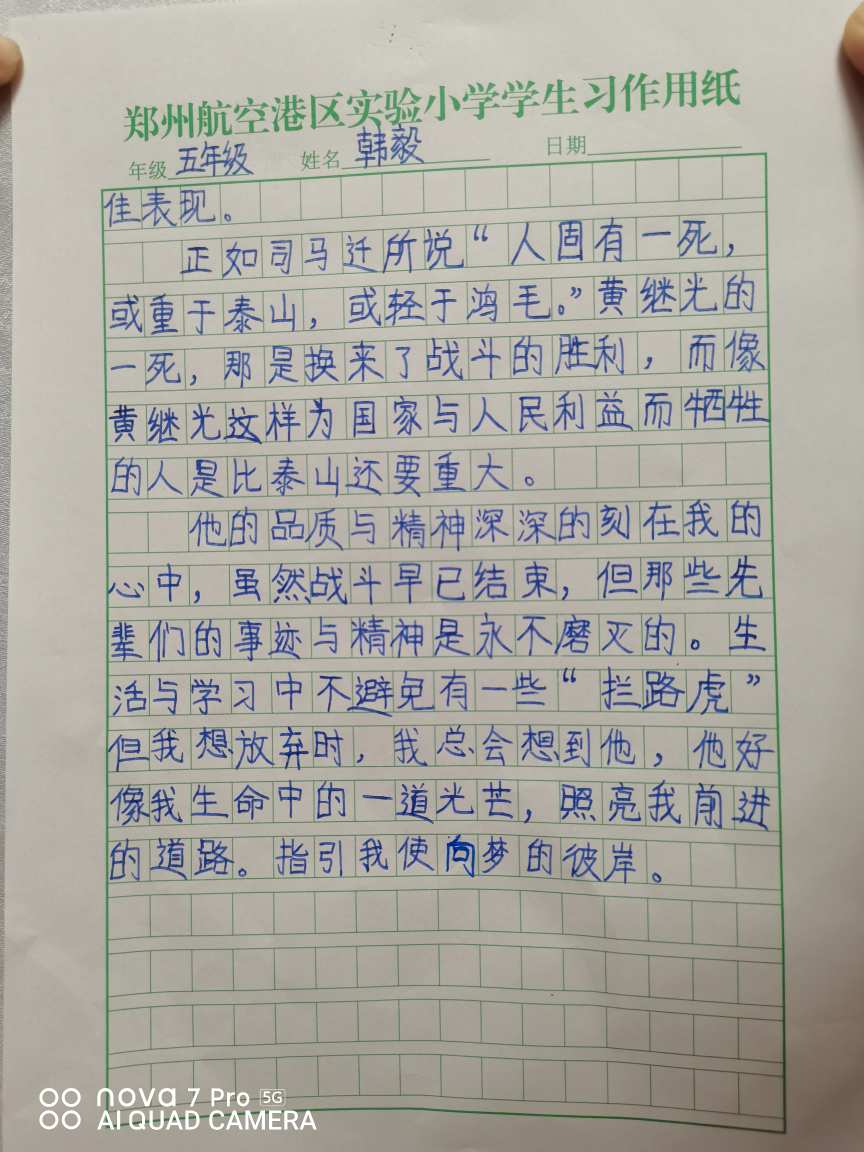 郑州航空港区实验小学学生习作用纸
年级 五年级 姓名 韩毅 日期
佳表现。
正如司马迁所说“人固有一死，
或重于泰山，或轻于鸿毛。”黄继光的
一死，那是换来了战斗的胜利，而像
黄继光这样为国家与人民利益而牺牲
的人是比泰山还要重大。
他的品质与精神深深的刻在我的
心中，虽然战斗早已结束，但那些先
辈们的事迹与精神是永不磨灭的。生
活与学习中不避免有一些“拦路虎”
但我想放弃时，我总会想到他，他好
像我生命中的一道光芒，照亮我前进
的道路。指引我使向梦的彼岸。
nova 7 Pro 5G
AI QUAD CAMERA